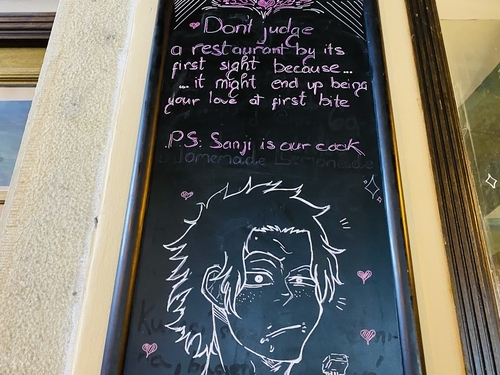 Don't judge
a restaurant by its
first sight because...
...it might end up being
your love at first bite
P.S: Sanji is our cook
Homemade Lemonade